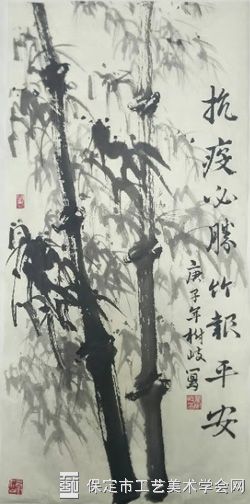 抗疫必勝竹報平安
庚子年樹岐寫
保定市工艺美术学会网